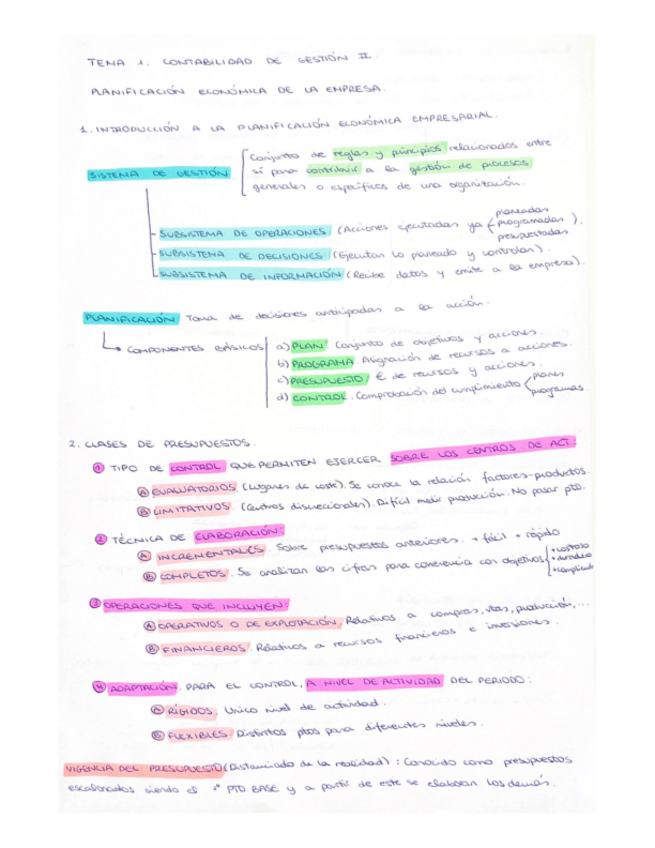 TEMA 1. CONTABILIDAD DE GESTIÓN II.
PLANIFICACIÓN ECONÓMICA DE LA EMPRESA.
1. INTRODUCCIÓN A LA PLANIFICACIÓN ECONÓMICA EMPRESARIAL.
SISTEMA DE GESTIÓN
Conjunto de reglas y principios relacionados entre
sí para contribuir a la gestión de procesos
generales o específicos de una organización.
SUBSISTEMA DE OPERACIONES (Acciones ejecutadas ya planeadas programadas presupuestadas).
SUBSISTEMA DE DECISIONES (Ejecutan lo planeado y controlan).
SUBSISTEMA DE INFORMACIÓN (Recibe datos y emite a la empresa).
PLANIFICACIÓN Toma de decisiones anticipadas a la acción.
COMPONENTES BÁSICOS
a) PLAN. Conjunto de objetivos y acciones.
b) PROGRAMA. Asignación de recursos a acciones.
c) PRESUPUESTO: € de recursos y acciones.
d) CONTROL. Comprobación del cumplimiento planes programas
2. CLASES DE PRESUPUESTOS.
1 TIPO DE CONTROL QUE PERMITEN EJERCER SOBRE LOS CENTROS DE ACT:
A EVALUATORIOS. (Lugares de coste). Se conoce la relación factores-productos.
B LIMITATIVOS. (Centros discrecionales). Difícil medir producción. No pasar pto.
2 TÉCNICA DE ELABORACIÓN:
A INCREMENTALES. Sobre presupuestos anteriores. + fácil + rápido
B COMPLETOS. Se analizan las cifras para coherencia con objetivos +costoso +duradero +complicado
3 OPERACIONES QUE INCLUYEN:
A OPERATIVOS O DE EXPLOTACIÓN. Relativos a compras, vtas, producción,...
B FINANCIEROS. Relativos a recursos financieros e inversiones.
4 ADAPTACIÓN. PARA EL CONTROL, A NIVEL DE ACTIVIDAD DEL PERIODO:
A RÍGIDOS. Único nivel de actividad.
B FLEXIBLES. Distintos ptos para diferentes niveles.
VIGENCIA DEL PRESUPUESTO (Distanciado de la realidad): Conocido como presupuestos
escalonados siendo el 1º PTO BASE y a partir de este se elaboran los demás.